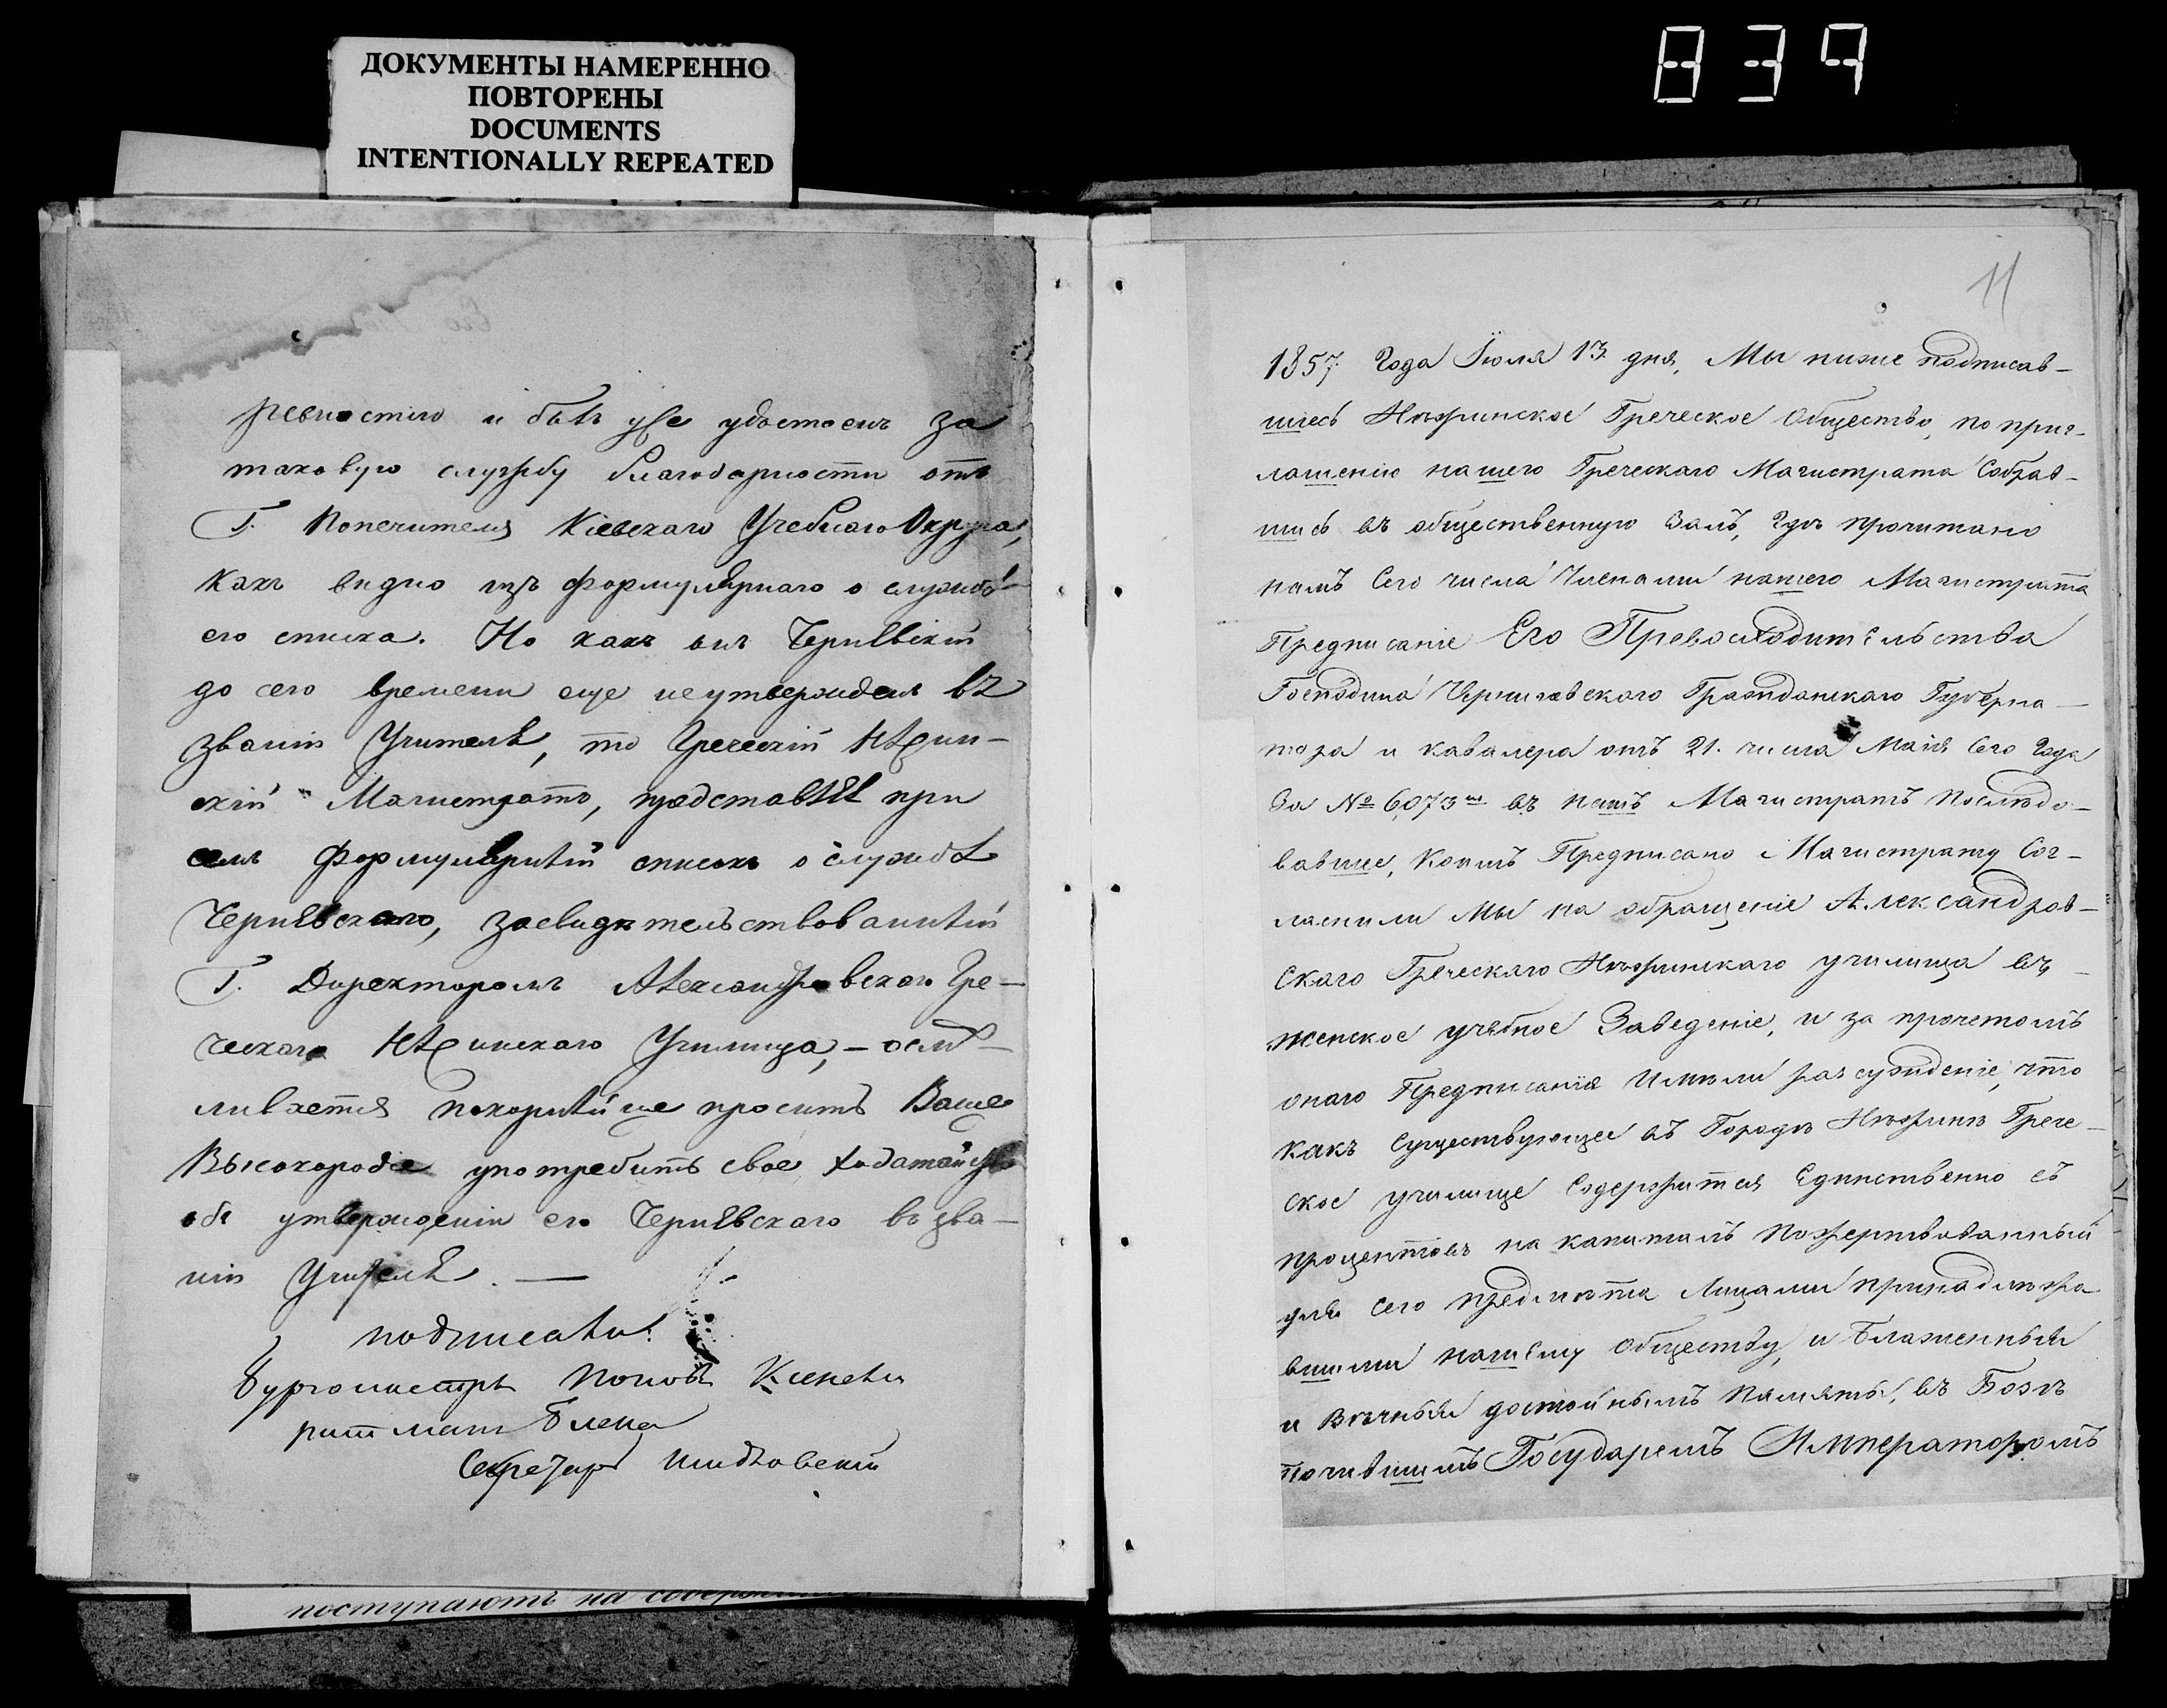 839
ДОКУМЕНТЫ НАМЕРЕННО
ПОВТОРЕНЫ
DOCUMENTS
INTENTIONALLY REPEATED
ревностію и бывъ уже удостоенъ за
таковую службу благодарности отъ
Г. Попечителя Кіевскаго Учебнаго Округа,
какъ видно изъ формулярнаго о службѣ
его списка. Но какъ онъ Чернявскій
до сего времени еще неутвержденъ въ
званіи Учителя, то Греческій Нѣжин-
скій Магистратъ, представляя при
семъ формулярный списокъ о службѣ
Чернявскаго, засвидѣтельствованный
Г. Директоромъ Александровскаго Гре-
ческаго Нѣжинскаго Училища, – осмѣ-
ливается покорнѣйше проситъ Ваше
Высокородіе употребить свое ходатайство
объ утвержденіи его Чернявскаго въ зва-
ніи Учителя. —
подписали:
Бургомистръ Поповъ
ратманъ Блека
Секретарь
поступаютъ на
11
1857. Года Іюля 13 дня, Мы ниже подписав-
шіесь Нѣжинское Греческое Общество, по приг-
лашенію нашего Греческаго Магистрата Собрав-
шись въ общественную Залъ, гдѣ прочитано
намъ Сего числа Членами нашего Магистрата
Предписаніе Его Превосходительства
Господина Черниговского Гражданскаго Губерна-
тора и кавалера отъ 21. числа Маія Сего Года
За № 6,073м въ нашъ Магистратъ Послѣдо-
вавшее, Коимъ Предписано Магистрату Сог-
ласнили Мы на обращеніе Александров-
Скаго Греческаго Нѣжинскаго училища въ
женское учебное Заведеніе, и за прочетомъ
онаго Предписанія Имѣли разсужденіе, что
какъ Существующее въ Городѣ Нѣжинѣ Грече-
ское училище Содержится Единственно съ
процентовъ на капиталъ Пожертвованный
для Сего предмѣта Лицами принадлѣжа
вшими нашему Обществу, и Блаженныя
и Вѣчныя достойнымъ Памяти, въ Бозѣ
Почившимъ Государемъ Императоромъ